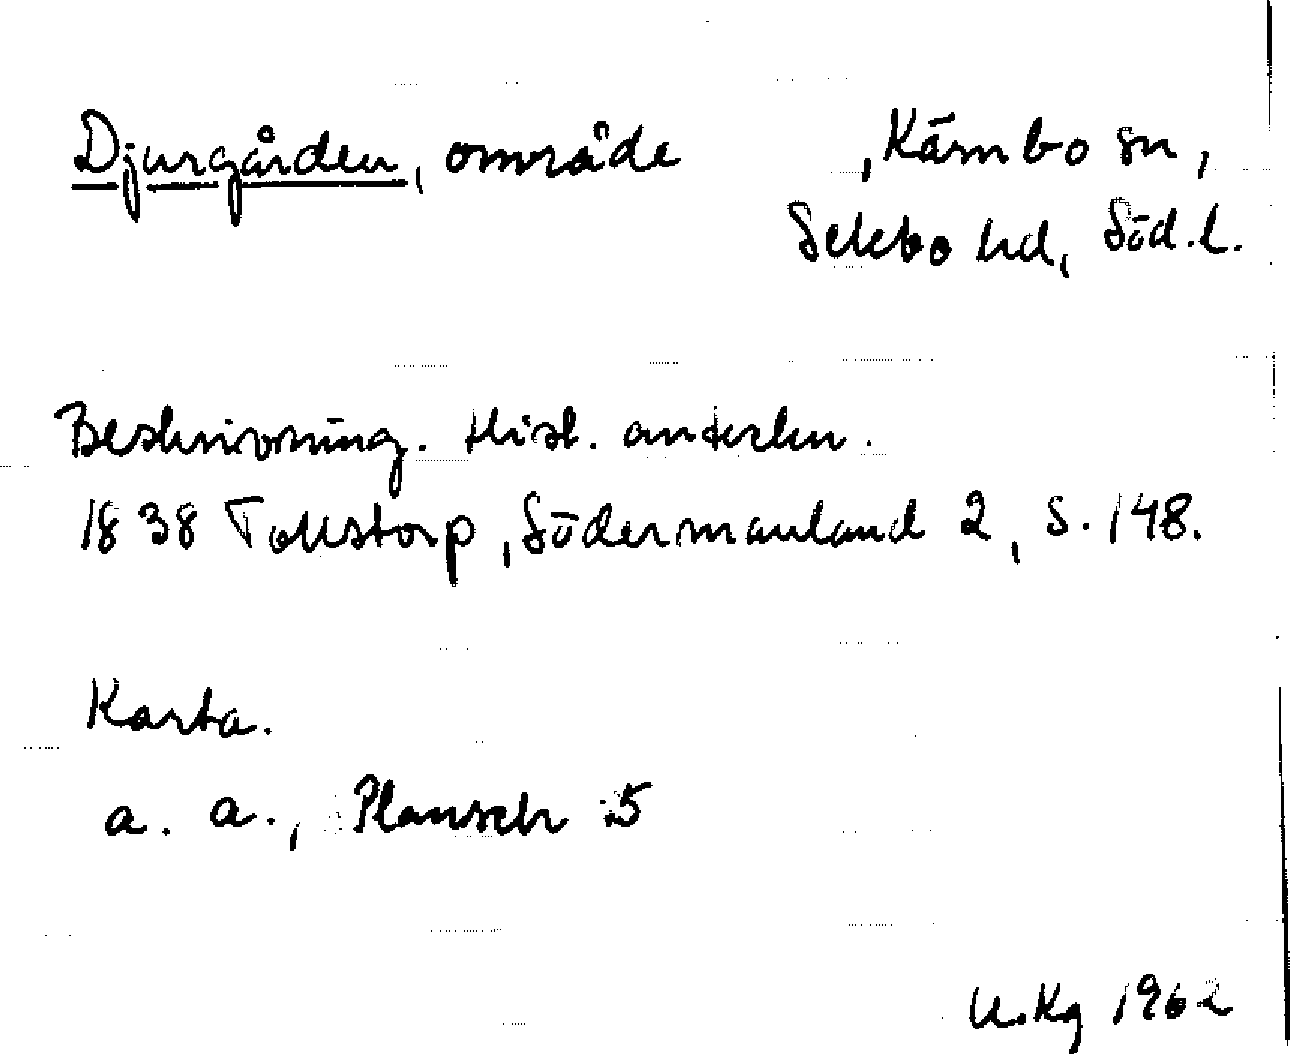 Djurgården, område , Kärnbo sn,
Selebo hd, Söd. l.
Beskrivning. Hist. anteckn.
1838 Tollstorp, Södermanland 2, s. 148.
Karta.
a. a., Plansch 5
U. Kg 1962